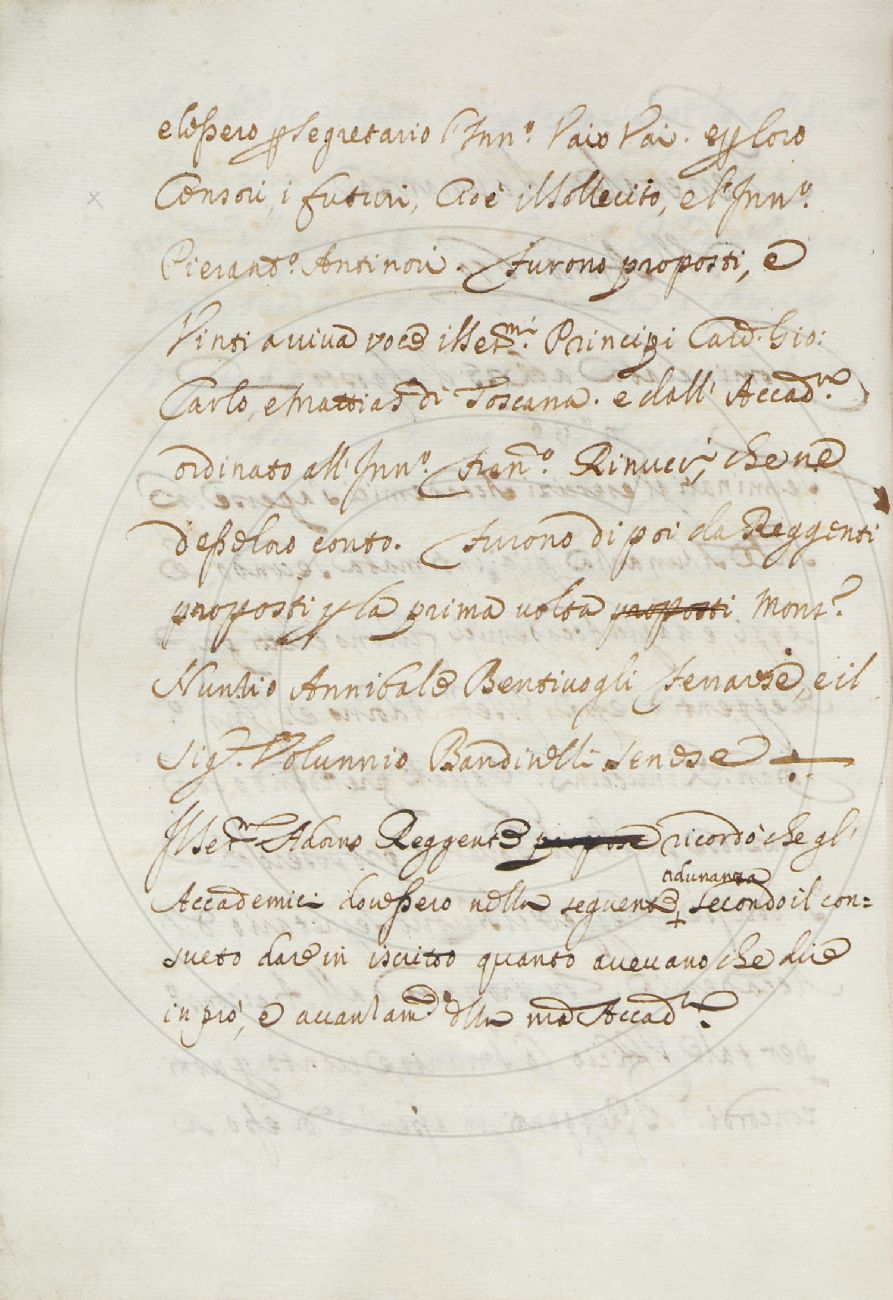 elessero p segretario l'Inn.º Vaio Vai. e p loro
Censori, i futuri, Cioè il Sollecito, e l'Inn.º
Pierant.º Antinori. Furono proposti, e
Vinti a viva voce i Ser.mi Principi Card. Gio:
Carlo, e Mattias di Toscana. e dall' Accad.ª
ordinato all' Inn.º Fran.º Rinucci, che ne
desse loro conto. Furono di poi da Reggenti
proposti p la prima volta proposti Mons.r
Nuntio Annibale Bentivogli Ferrarese, e il
Sig.r Volunnio Bandinelli Senese
Il Ser.mo Adorno Reggente propose ricordò che gl'
adunanza
Accademici dovessero nella seguente secondo il con=
sueto dare in iscritto quanto avevano che dire
in prò, e avanzam.to della md Accad.ª